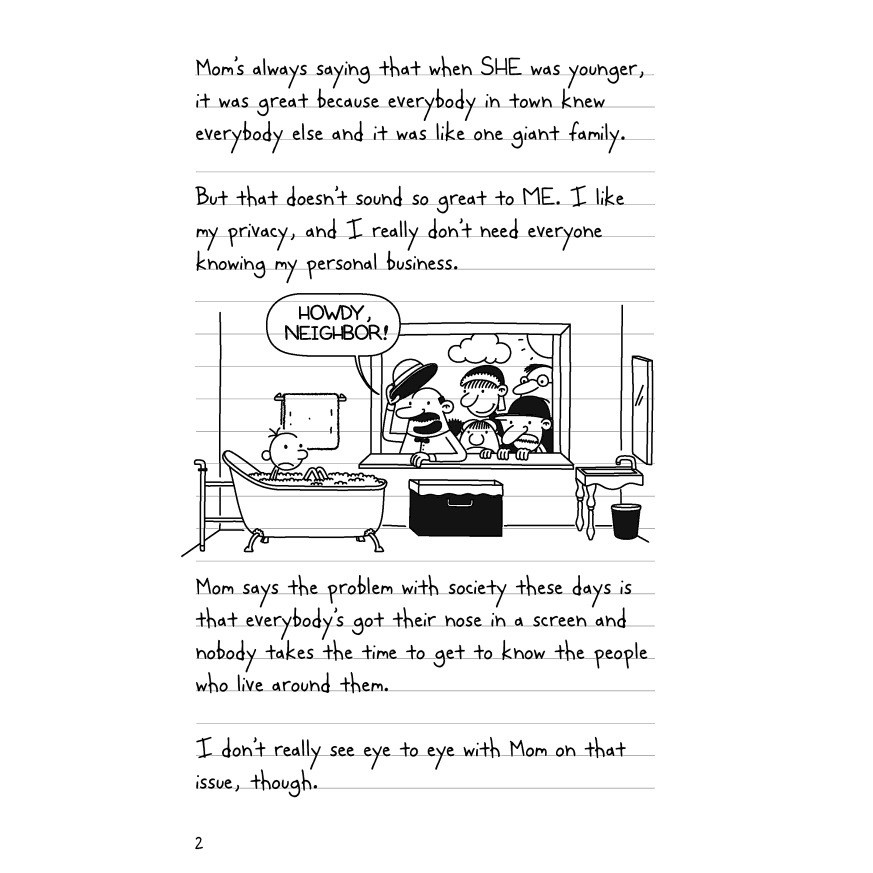 Mom's always saying that when SHE was younger,
it was great because everybody in town knew
everybody else and it was like one giant family.
But that doesn't sound so great to ME. I like
my privacy, and I really don't need everyone
knowing my personal business.
HOWDY,
NEIGHBOR!
Mom says the problem with society these days is
that everybody's got their nose in a screen and
nobody takes the time to get to know the people
who live around them.
I don't really see eye to eye with Mom on that
issue, though.
2